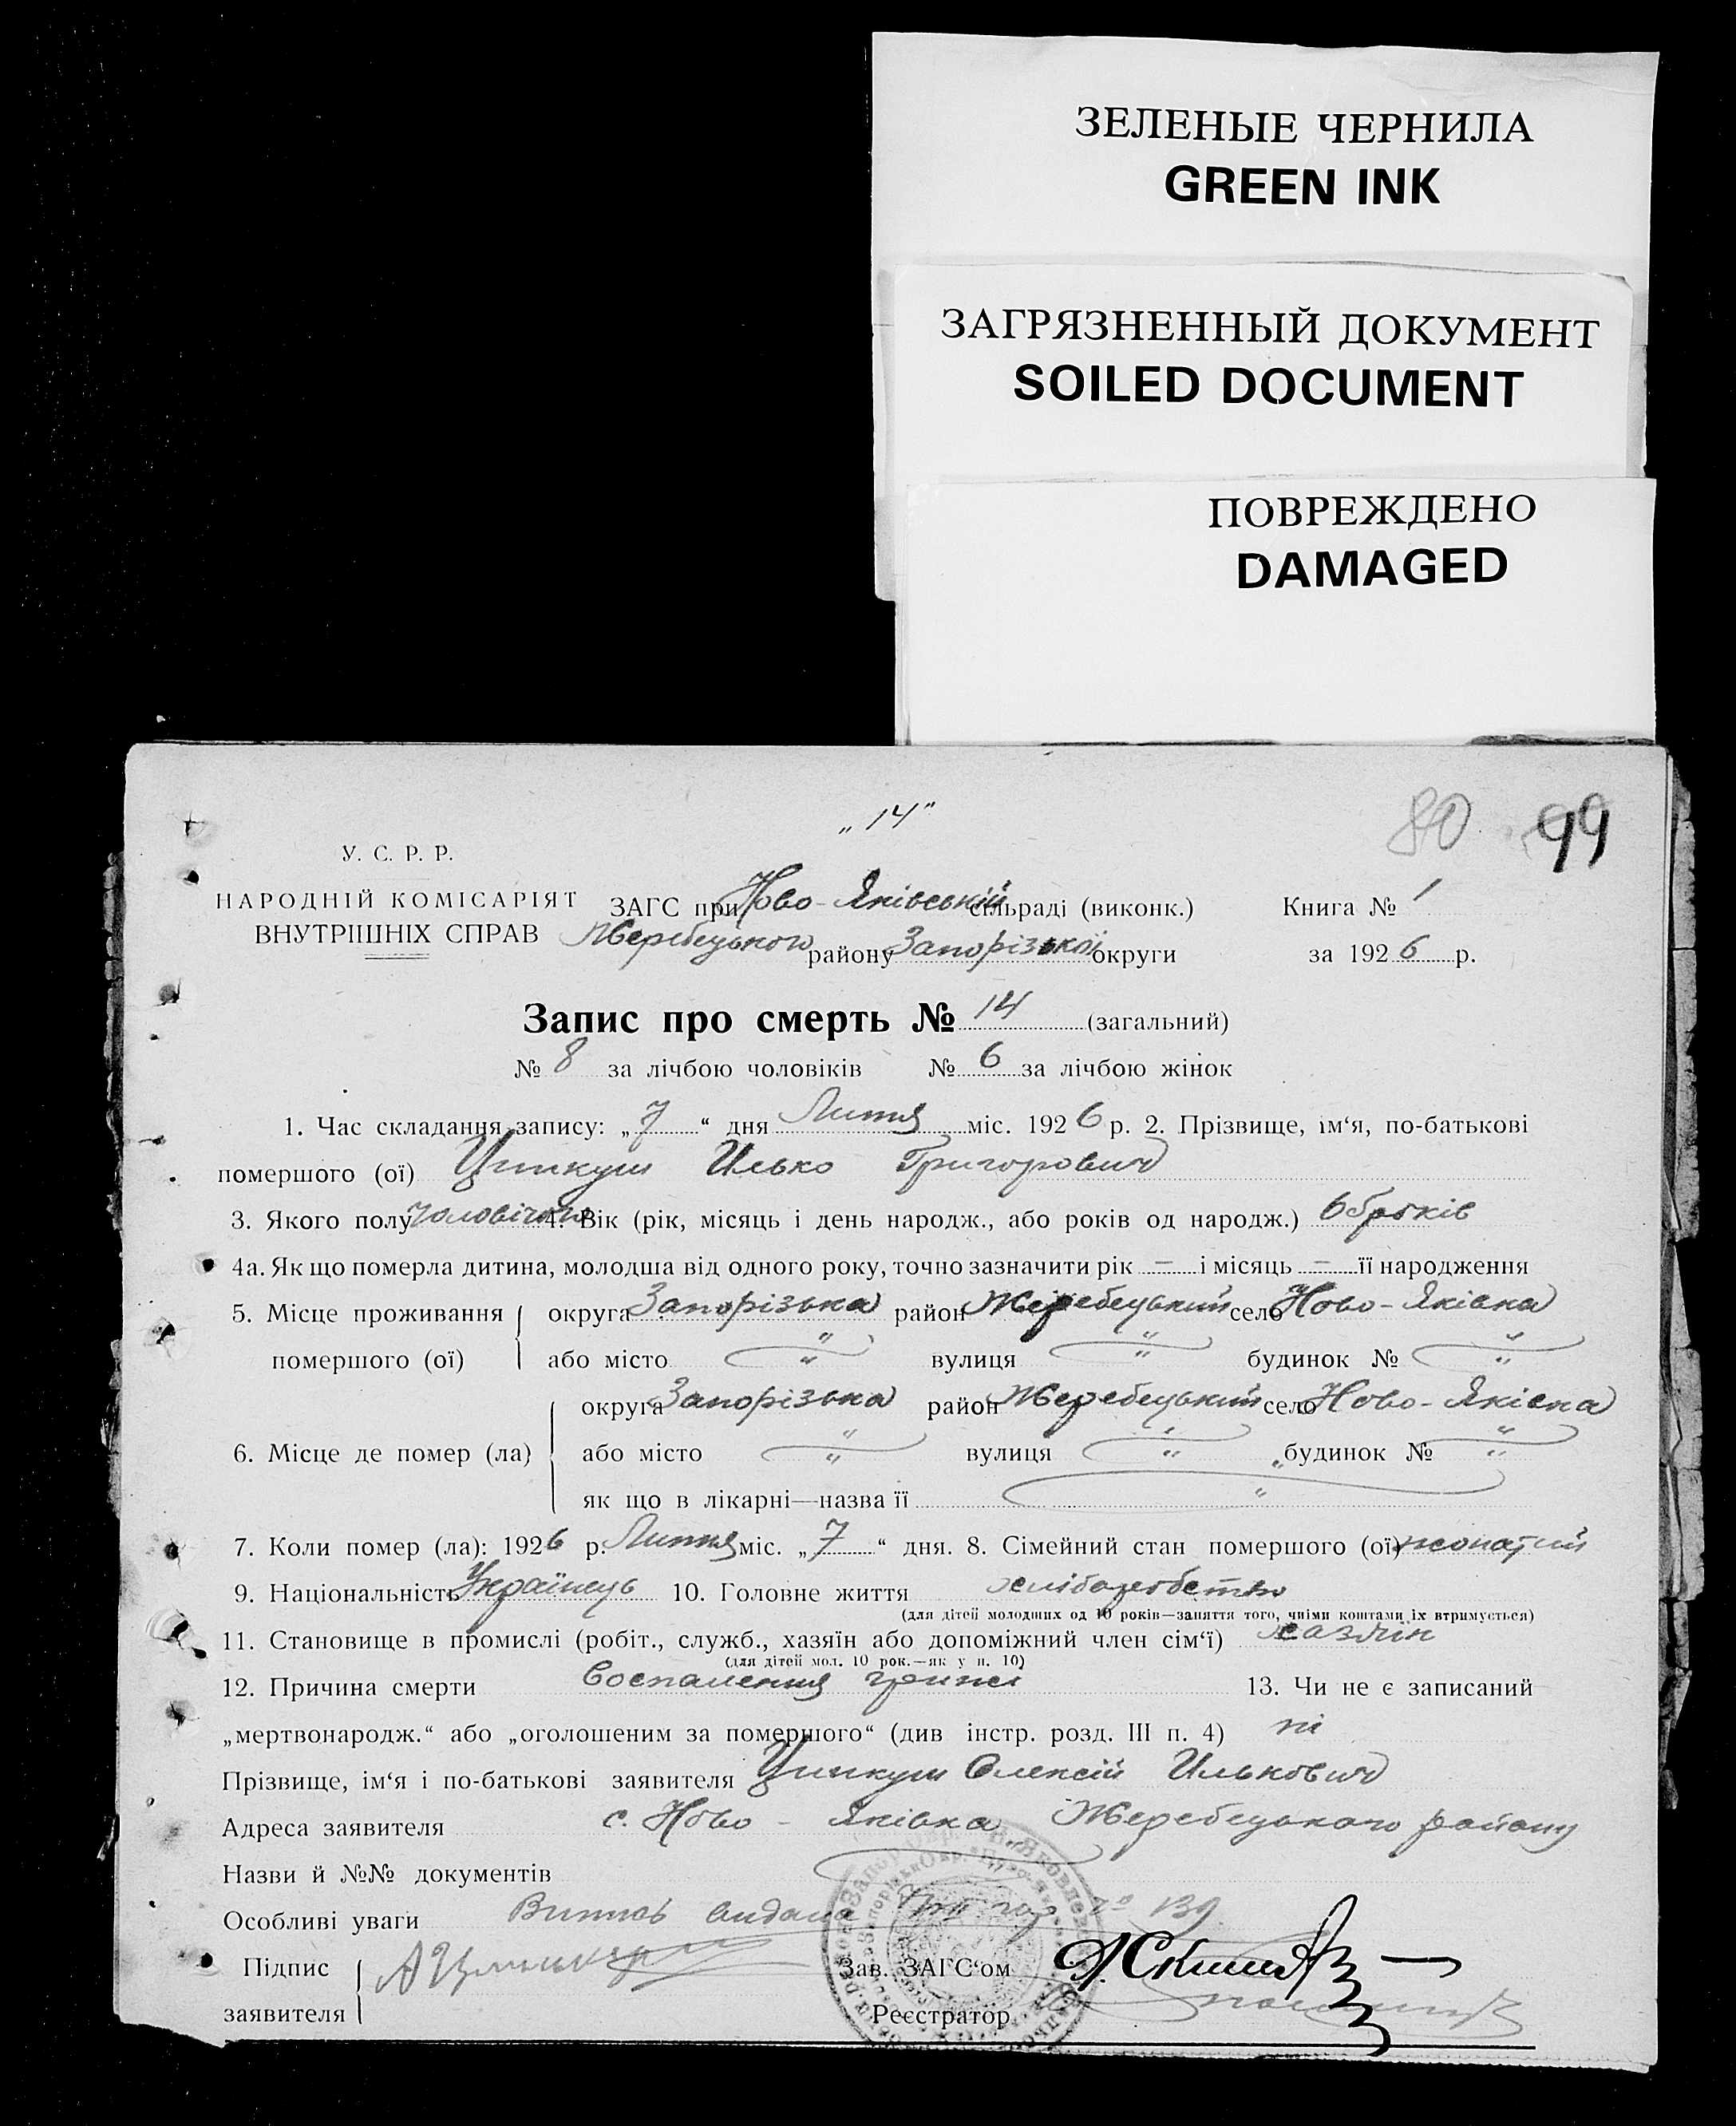 ЗЕЛЕНЫЕ ЧЕРНИЛА
GREEN INK
ЗАГРЯЗНЕННЫЙ ДОКУМЕНТ
SOILED DOCUMENT
ПОВРЕЖДЕНО
DAMAGED
„14”
80 99
У. С. Р. Р.
НАРОДНІЙ КОМІСАРІЯТ
ВНУТРІШНІХ СПРАВ
ЗАГС при Ново-Яківській сільраді (виконк.)
Жеребецького району Запорізької округи
Книга № 1
за 1926 р.
Запис про смерть № 14 (загальний)
№ 8 за лічбою чоловіків № 6 за лічбою жінок
1. Час складання запису: „7“ дня Липня міс. 1926 р. 2. Прізвище, ім‘я, по-батькові
помершого (ої) Ципкуш Илько Григорович
3. Якого полу чоловічого 4. Вік (рік, місяць і день народж., або років од народж.) років
4а. Як що померла дитина, молодша від одного року, точно зазначити рік — і місяць — її народження
5. Місце проживання помершого (ої) округа Запорізька район Жеребецький село Ново-Яківка
або місто " вулиця " будинок № "
6. Місце де помер (ла) округа Запорізька район Жеребецький село Ново-Яківка
або місто " вулиця " будинок № "
як що в лікарні—назва її "
7. Коли помер (ла): 1926 р. Липня міс. „7“ дня. 8. Сімейний стан помершого (ої) жонатий
9. Національність Українець 10. Головне життя хліборобство
(для дітей молодших од 10 років—заняття того, чиїми коштами їх втримується)
11. Становище в промислі (робіт., служб., хазяїн або допоміжний член сім‘ї) хазяїн
(для дітей мол. 10 рок.—як у п. 10)
12. Причина смерти Воспаления 13. Чи не є записаний
„мертвонародж.“ або „оголошеним за помершого“ (див інстр. розд. III п. 4) ні
Прізвище, ім‘я і по-батькові заявителя Ципкуш Олексій Илькович
Адреса заявителя с. Ново-Яківка Жеребецького району
Назви й №№ документів
Особливі уваги Випись видана
Підпис заявителя
Зав. ЗАГС‘ом
Реєстратор